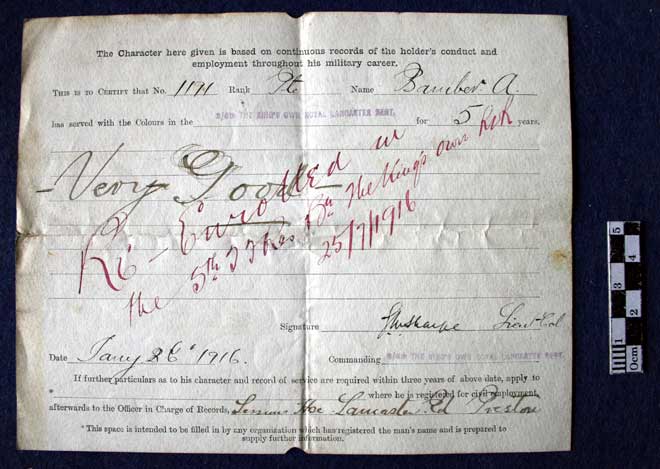 The Character here given is based on continuous records of the holder's conduct and
employment throughout his military career.
THIS IS TO CERTIFY that No. 1171 Rank Pte Name Bamber A.
has served with the Colours in the THE KING'S OWN ROYAL LANCASTER REGT. for 5 years.
Very Good
Re-Enrolled in
the 5th Bn The King's Own RLR
25/7/1916
Signature Sharpe Lieut Col
Date Jany 26 1916. Commanding THE KING'S OWN ROYAL LANCASTER REGT.
If further particulars as to his character and record of service are required within three years of above date, apply to
* where he is registered for civil employment,
afterwards to the Officer in Charge of Records, Hse Lancaster Rd Preston
*This space is intended to be filled in by any organization which has registered the man's name and is prepared to
supply further information.
5
4
3
2
1
0cm